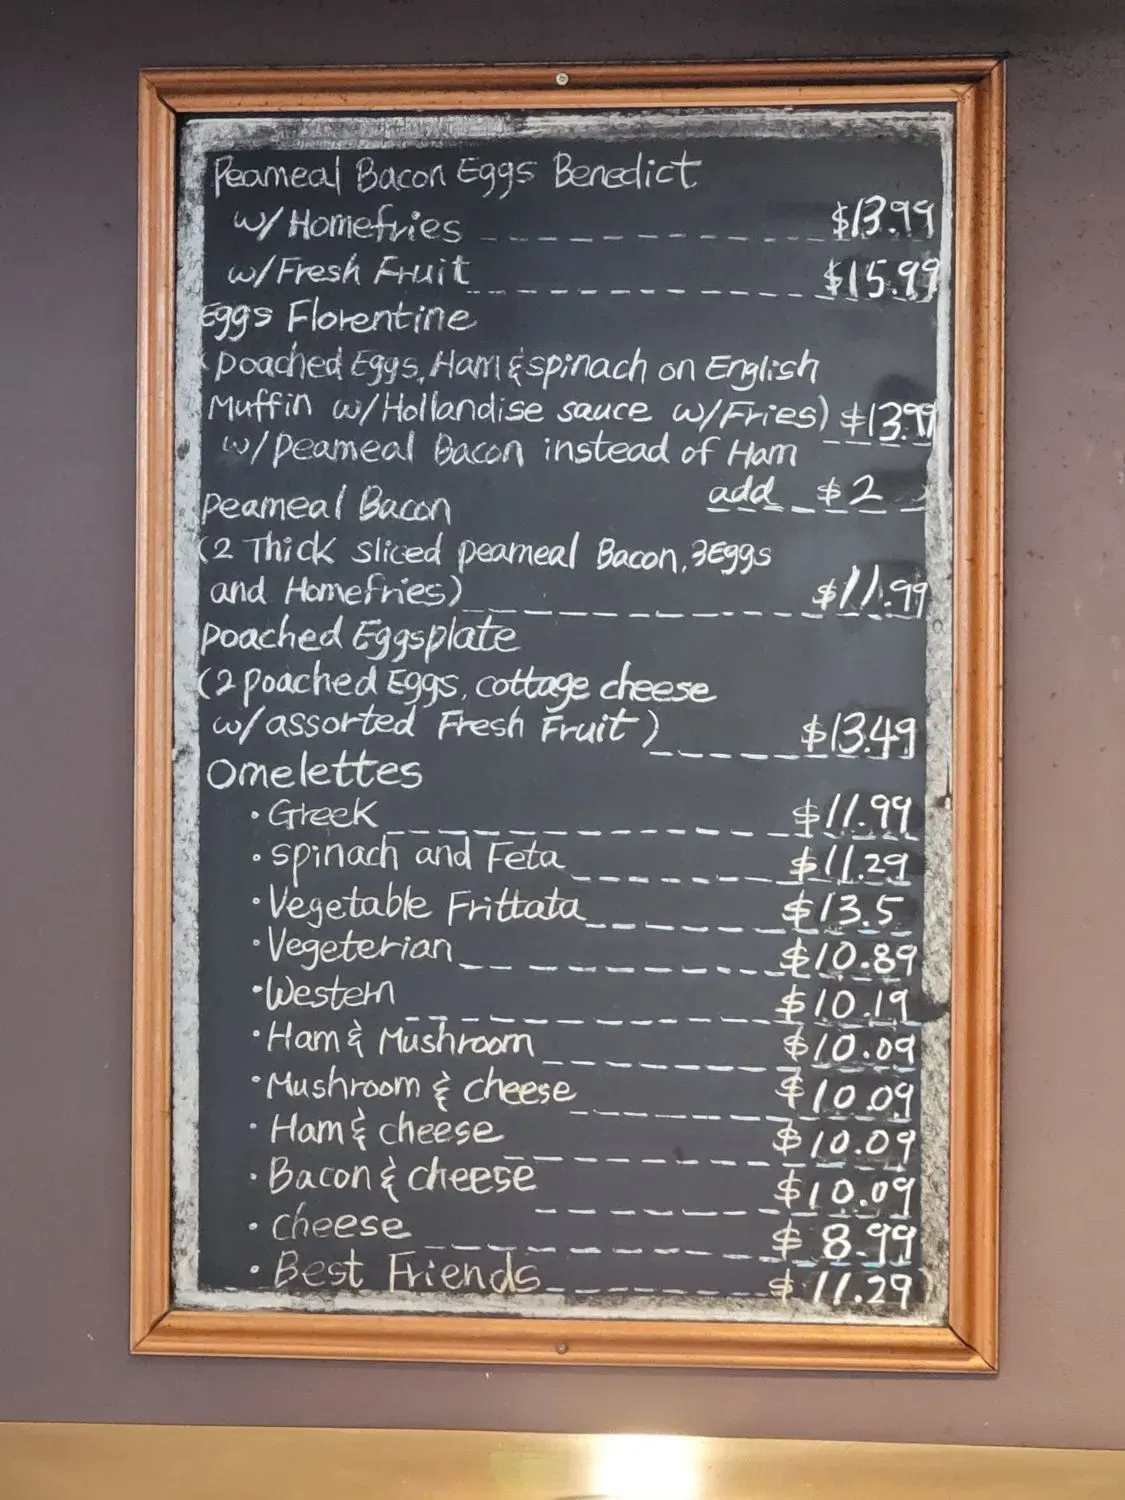 Peameal Bacon Eggs Benedict
w/Homefries $13.99
w/Fresh Fruit $15.99
Eggs Florentine
(poached Eggs, Ham & spinach on English
Muffin w/Hollandise sauce w/Fries) $13.99
w/peameal Bacon instead of Ham
add $2
peameal Bacon
(2 Thick sliced peameal Bacon, 3Eggs
and Homefries) $11.99
poached Eggsplate
(2 poached Eggs, cottage cheese
w/assorted Fresh Fruit) $13.49
Omelettes
• Greek $11.99
• spinach and Feta $11.29
• Vegetable Frittata $13.5
• Vegeterian $10.89
• Western $10.19
• Ham & Mushroom $10.09
• Mushroom & cheese $10.09
• Ham & cheese $10.09
• Bacon & cheese $10.09
• cheese $8.99
• Best Friends $11.29